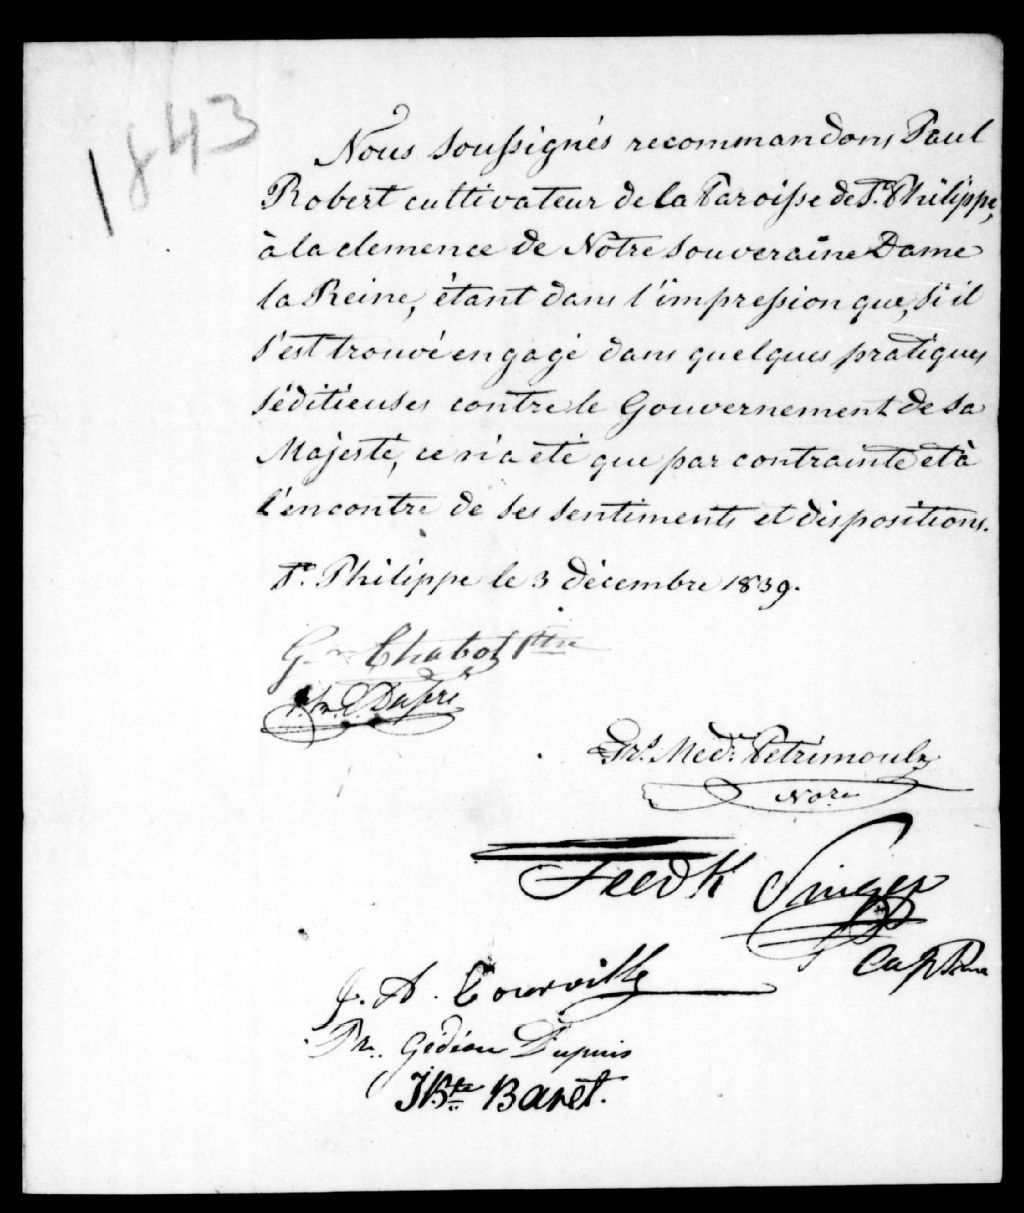 1843
Nous soussignés recommandons Paul
Robert cultivateur de la Paroisse de St. Philippe,
à la clemence de Nôtre Souveraine Dame
la Reine, étant dans l'impression que, si il
s'est trouvé engagé dans quelques pratiques
séditieuses contre le Gouvernement de Sa
Majesté, ce n'a été que par contrainte et à
l'encontre de ses sentiments et dispositions.
St. Philippe le 3 décembre 1839.
Chabot Ptre
Frs. Med. Petrimoulx
Nore
Fredk Singer
Capt
J. A. Tourville
Pr. Gédéon Dupuis
J Bte Baret.